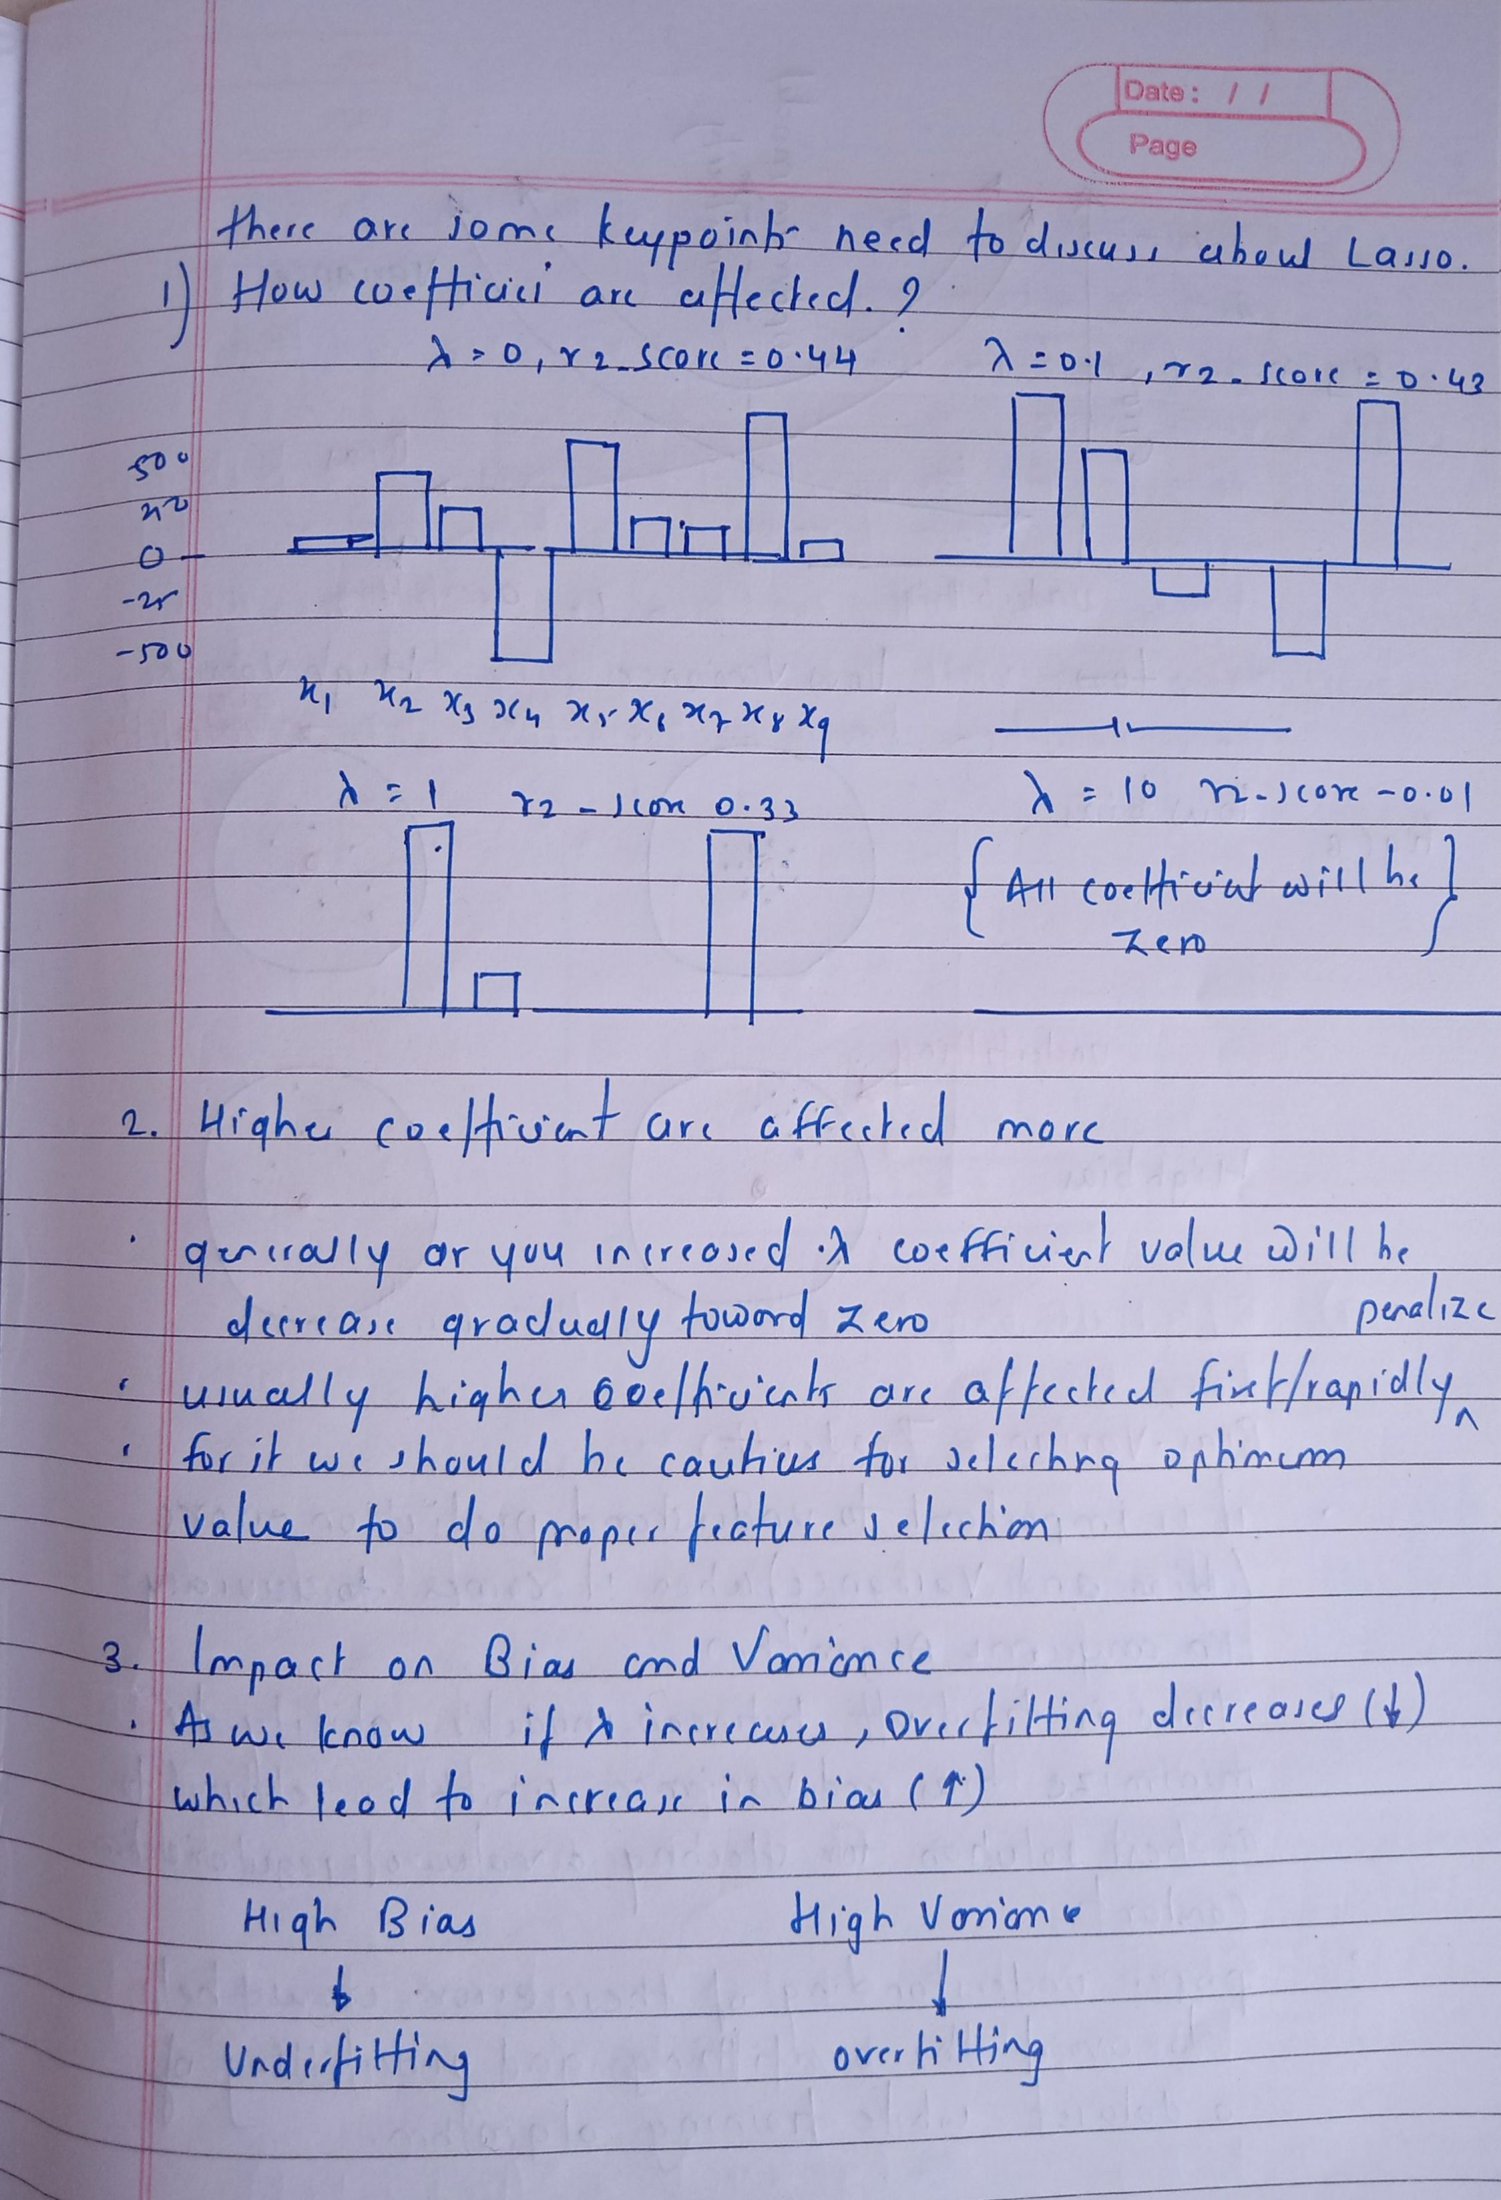 Date: / /
Page
there are some keypoints need to discuss about Lasso.
1) How coefficiei are affected.?
λ = 0, r2_score = 0.44
λ = 0.1, r2_score = 0.43
500
0
-25
-500
x1 x2 x3 x4 x5 x6 x7 x8 x9
λ = 1 r2-score 0.33
λ = 10 r2-score -0.01
{ All coefficient will be }
zero
2. Higher coefficient are affected more
. generally as you increased . λ coefficient value will be
decrease gradually toward zero
penalize
. usually higher coefficients are affected first/rapidly ^
. for it we should be cautius for selecting optimum
value to do proper feature selection
3. Impact on Bias and Variance
. As we know if λ increases, overfitting decreases (↓)
which lead to increase in bias (↑)
High Bias High Variance
↓ ↓
Underfitting overfitting